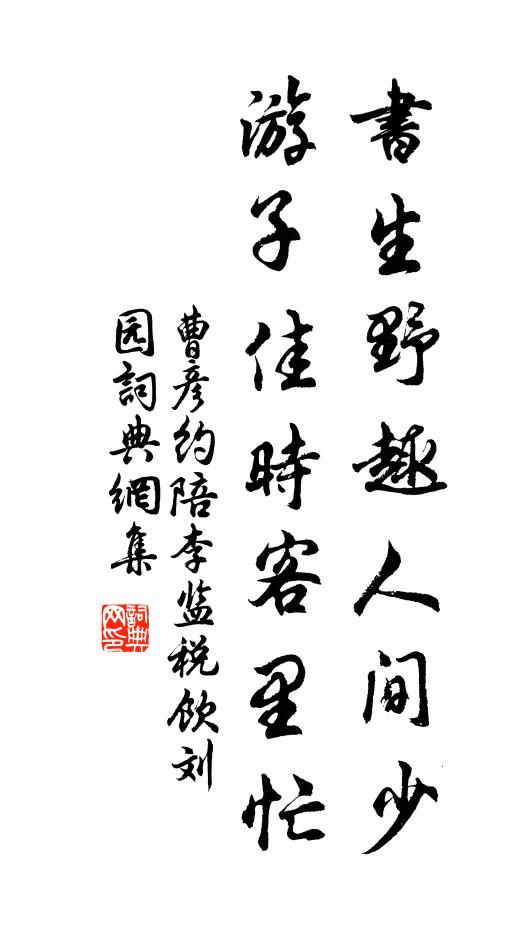 書生野趣人间少
游子佳時客里忙
曹彦约陪李监税饮刘
园詞典網集
詞典
网印